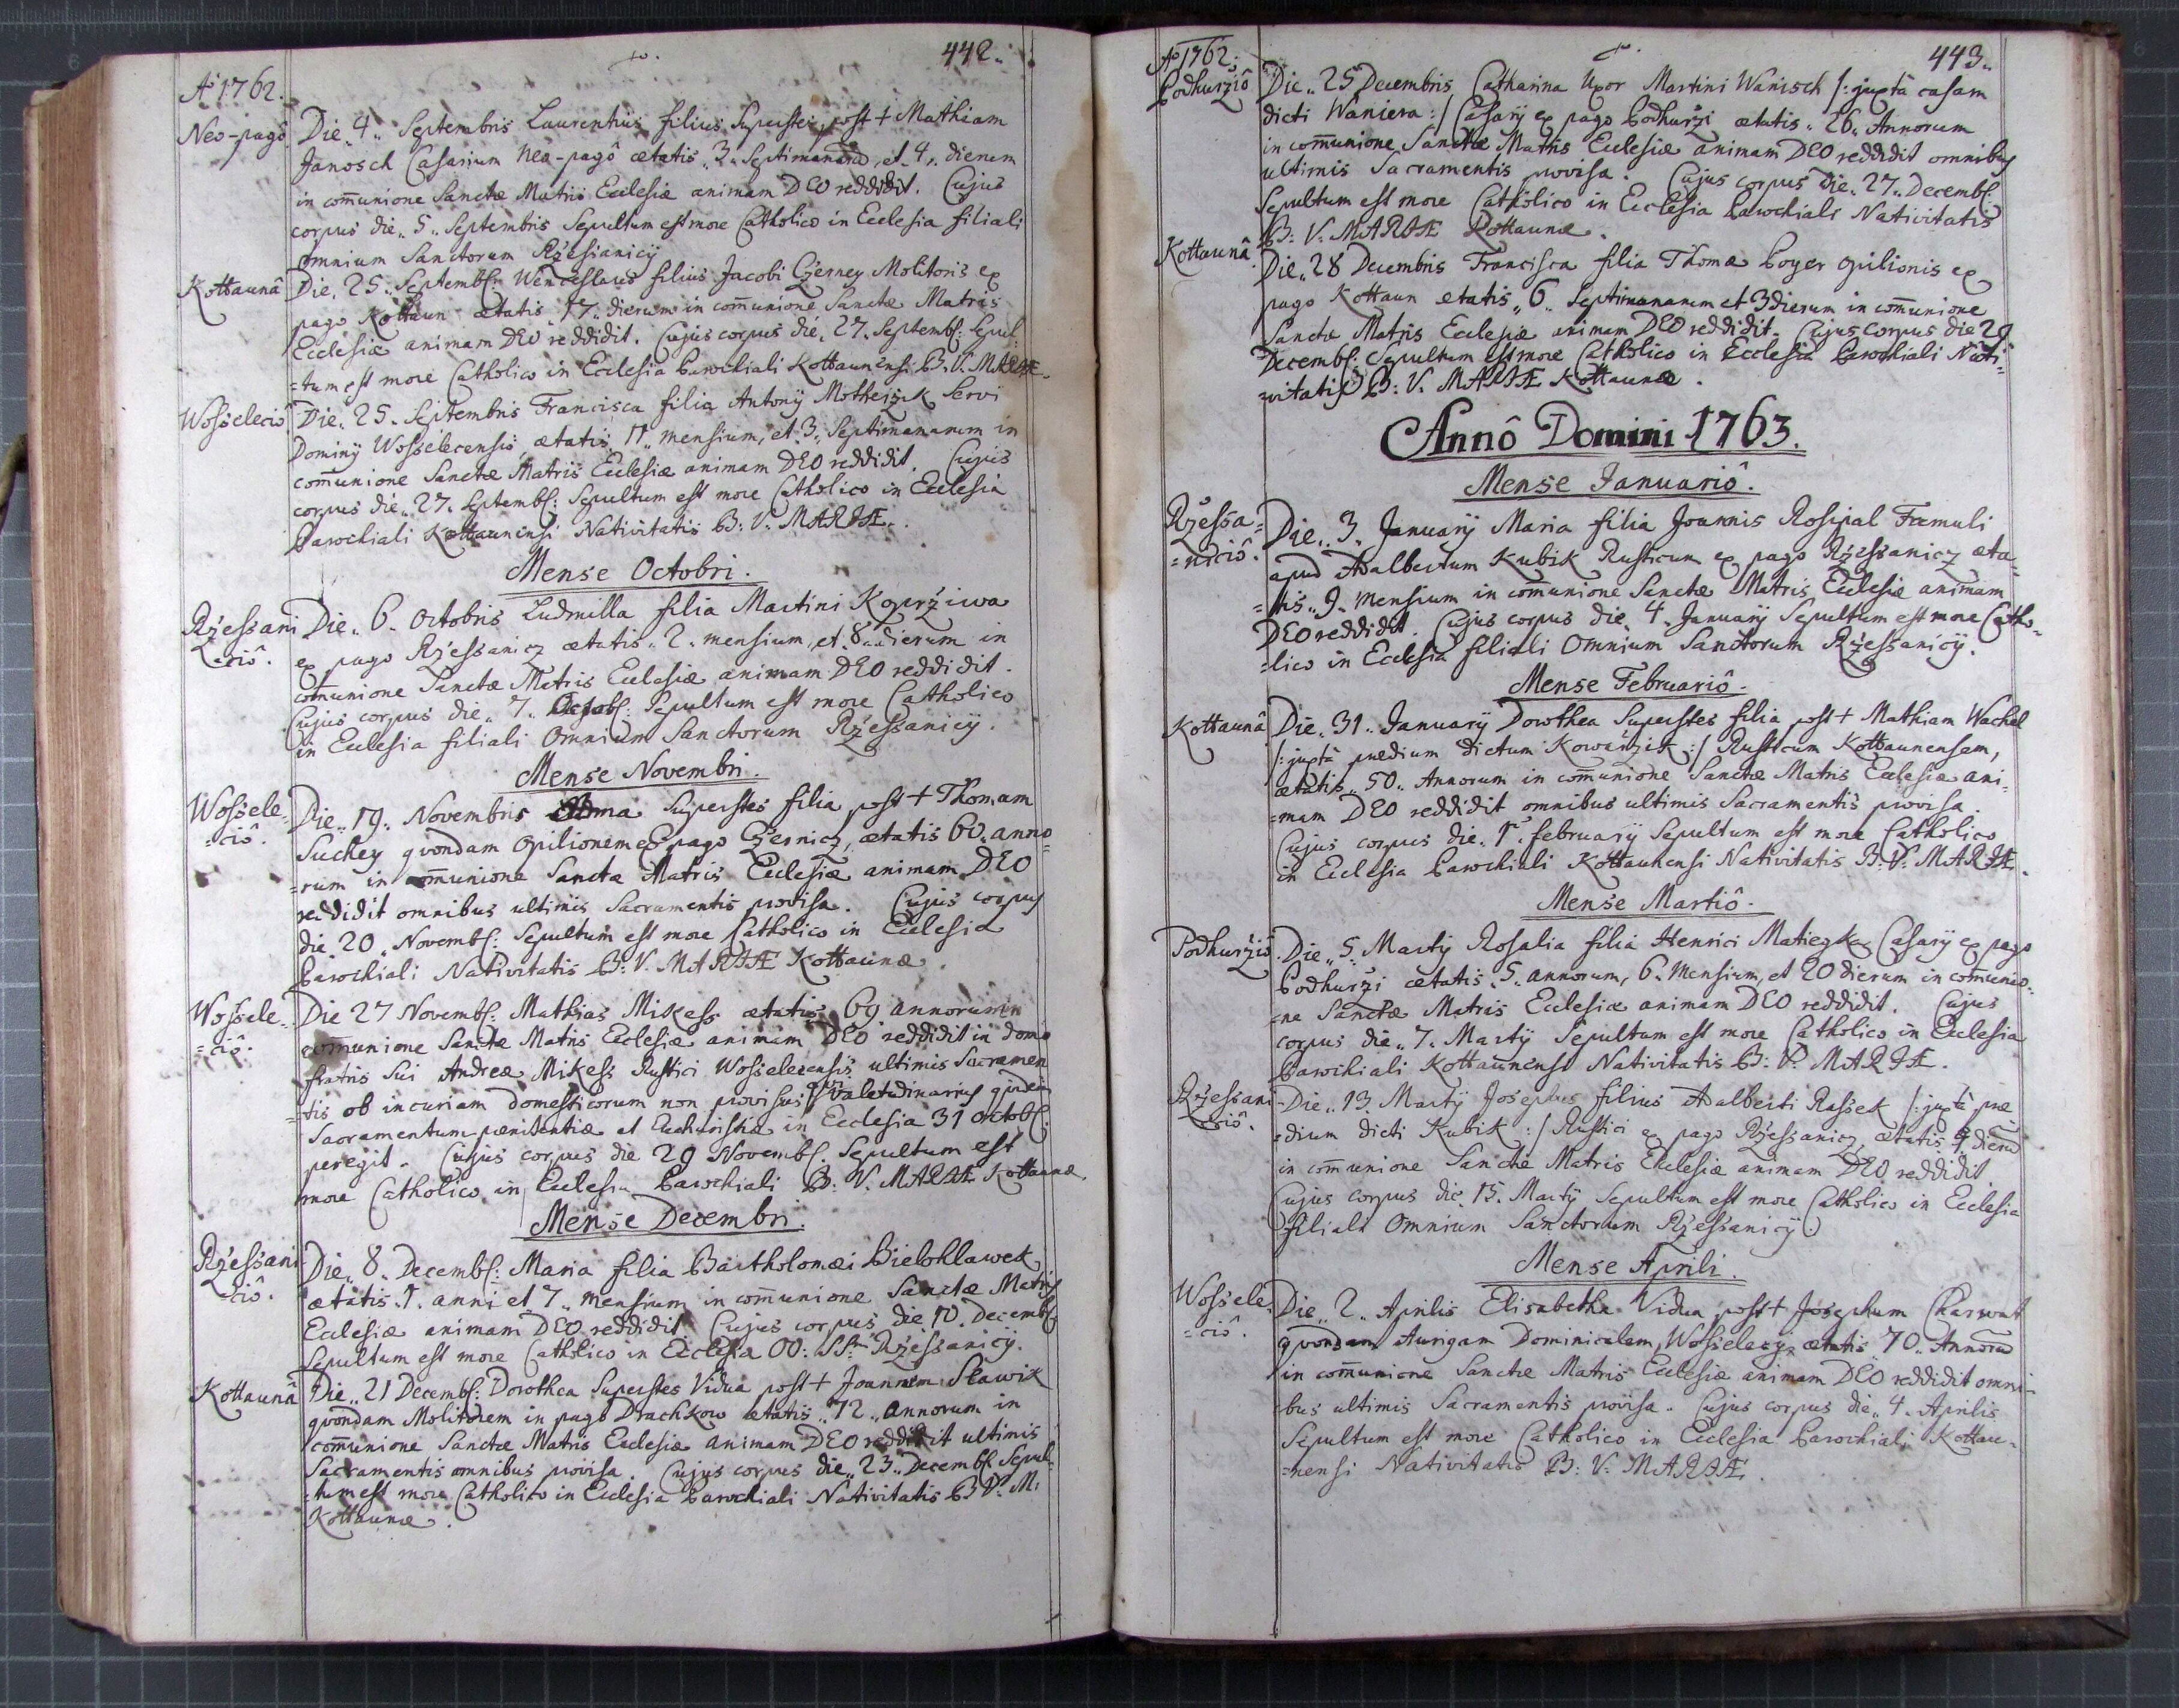 442.
Aō 1762.
Neo-pagô
Die „ 4 „ Septembris Laurentius filius Superstes post + Mathiam
Janosch Casarium Neo-pagô ætatis „ 3 „ Septimanarū, et „ 4 „ dierum
in com̄unione Sanctæ Matris Ecclesiæ animam DEO reddidit. Cujus
corpus die „ 5 „ Septembris Sepultum est more Catholico in Ecclesia filiali
omnium Sanctorum Rżessanicij
Kottaunâ
Die, 25 „ Septembr: Wenceslaus filius Jacobi Czerney Molitoris ex
pago Kottaun ætatis 17 „ dierum in com̄unione Sanctæ Matris
Ecclesiæ animam DEO reddidit. Cujus corpus die „ 27 „ Septembr: Sepul=
=tum est more Catholico in Ecclesia Parochiali Kottaunensi B. V. MARIÆ.
Wosseleciô
Die „ 25. Septembris Francisca filia Antonij Motheizik Servi
Dominij Wosselecensis, ætatis 11 „ mensium, et 3 „ Septimanarum in
com̄unione Sanctæ Matris Ecclesiæ animam DEO reddidit. Cujus
corpus die „ 27. Septembr: Sepultum est more Catholico in Ecclesia
Parochiali Kottaunensi Nativitatis B: V: MARIÆ.
Mense Octobri.
Rżessani
=ciô.
Die „ 6. Octobris Ludmilla filia Martini Koprżiwa
ex pago Rżessanicz ætatis „ 2 „ mensium, et „ 8 „ dierum in
com̄unione Sanctæ Matris Ecclesiæ animam DEO reddidit.
Cujus corpus die „ 7. Octobr: Sepultum est more Catholico
in Ecclesia filiali Omnium Sanctorum Rżessanicij.
Mense Novembri.
Wossele=
=ciô.
Die „ 19 „ Novembris Anna Superstes filia post + Thomam
Suchey qvondam Opilionem ex pago Czernicz, ætatis 60. anno=
=rum in com̄unione Sanctæ Matris Ecclesiæ animam DEO
reddidit omnibus ultimis Sacramentis provisa. Cujus corpus
die 20 „ Novembr: Sepultum est more Catholico in Ecclesia
Parochiali Nativitatis B: V. MARIÆ Kottaunæ.
Wossele=
=ciô.
Die 27 Novembr: Mathias Mikess ætatis 69 annorum in
com̄unione Sanctæ Matris Ecclesiæ animam DEO reddidit in domo
fratris sui Andreæ Mikess Rustici Wosselecensis ultimis Sacramen
=tis ob incuriam domesticorum non provisus valetudinarius
Sacramentum pænitentiæ et Eucharistiæ in Ecclesia 31 Octobr:
peregit. Cujus corpus die 29 Novembr. Sepultum est
more Catholico in Ecclesia Parochiali B: V. MARIÆ Kottaunæ.
Mense Decembri.
Rżessani
=ciô.
Die „ 8 „ Decembr: Maria filia Bartholomæi Bielohlawek
ætatis „ 1. anni et 7 „ mensium in com̄unione Sanctæ Matris
Ecclesiæ animam DEO reddidit. Cujus corpus die 10. Decembr
Sepultum est more Catholico in Ecclesia OO: SS: Rżessanicij.
Kottaunâ
Die „ 21 Decembr: Dorothea Superstes Vidua post + Joannem Slawik
qvondam Molitorem in pago Drachkow ætatis „ 72 „ annorum in
com̄unione Sanctæ Matris Ecclesiæ animam DEO reddidit ultimis
Sacramentis omnibus provisa. Cujus corpus die „ 23 „ Decembr Sepul=
=tum est more Catholico in Ecclesia Parochiali Nativitatis B V. M:
Kottaunæ.
443.
Aō 1762.
Podhurziô
Die „ 25 Decembris Catharina Uxor Martini Wanisch /: juxtà casam
dicti Waniera :/ Casarij ex pago Podhurżi ætatis „ 26 „ Annorum
in com̄unione Sanctæ Matris Ecclesiæ animam DEO reddidit omnibus
ultimis Sacramentis provisa. Cujus corpus die „ 27 „ Decembr:
Sepultum est more Catholico in Ecclesia Parochiali Nativitatis
B: V: MARIÆ Kottaunæ.
Kottaunâ
Die „ 28 Decembris Francisca filia Thomæ Poyer Opilionis ex
pago Kottaun etatis „ 6 „ Septimanarum et 3 dierum in com̄unione
Sanctæ Matris Ecclesiæ animam DEO reddidit. Cujus corpus die 29
Decembr: Sepultum est more Catholico in Ecclesia Parochiali Nati=
=vitatis B: V. MARIÆ Kottaunæ.
Annô Domini 1763.
Mense Ianuariô.
Rżessa=
=niciô.
Die „ 3 „ Januarij Maria filia Joannis Rosipal Famuli
apud Adalbertum Kubik Rusticum ex pago Rżessanicz æta=
=tis „ 9 „ Mensium in com̄unione Sanctæ Matris Ecclesiæ animam
DEO reddidit. Cujus corpus die „ 4. Januarij Sepultum est more Catho=
=lico in Ecclesia filiali Omnium Sanctorum Rżessanicij.
Mense Februariô.
Kottaunâ
Die „ 31 „ Januarij Dorothea Superstes filia post + Mathiam Wachel
/: juxtà prædium dictum Kowarżik :/ Rusticum Kottaunensem,
ætatis „ 50 „ Annorum in com̄unione Sanctæ Matris Ecclesiæ ani=
=mam DEO reddidit omnibus ultimis Sacramentis provisa.
Cujus corpus die „ 1. February Sepultum est more Catholico
in Ecclesia Parochiali Kottaunensi Nativitatis B: V: MARIÆ.
Mense Martiô.
Podhurżiô
Die „ 5. Martij Rosalia filia Henrici Matiegka Casarij ex pago
Podhurżi ætatis „ 5 „ annorum, 6 „ Mensium, et 20 dierum in com̄unio=
=ne Sanctæ Matris Ecclesiæ animam DEO reddidit. Cujus
corpus die „ 7. Martij Sepultum est more Catholico in Ecclesia
Parochiali Kottaunensi Nativitatis B: V. MARIÆ.
Rżessani
=ciô.
Die „ 13. Martij Josephus filius Adalberti Rassek /: juxtà præ
=dium dicti Kubik :/ Rustici ex pago Rżessanicz, ætatis 9 dierū
in com̄unione Sanctæ Matris Ecclesiæ animam DEO reddidit
Cujus corpus die 15. Martij Sepultum est more Catholico in Ecclesia
filiali Omnium Sanctorum Rżessanicij
Mense Aprili.
Wossele=
=ciô.
Die „ 2 „ Aprilis Elisabetha Vidua post + Josephum Charwat
qvondam Aurigam Dominicalem Wosselecij ætatis 70 „ Annorū
in com̄unione Sanctæ Matris Ecclesiæ animam DEO reddidit omni=
=bus ultimis Sacramentis provisa. Cujus corpus die „ 4. Aprilis
Sepultum est more Catholico in Ecclesia Parochiali Kottau=
=nensi Nativitatis B: V: MARIÆ.